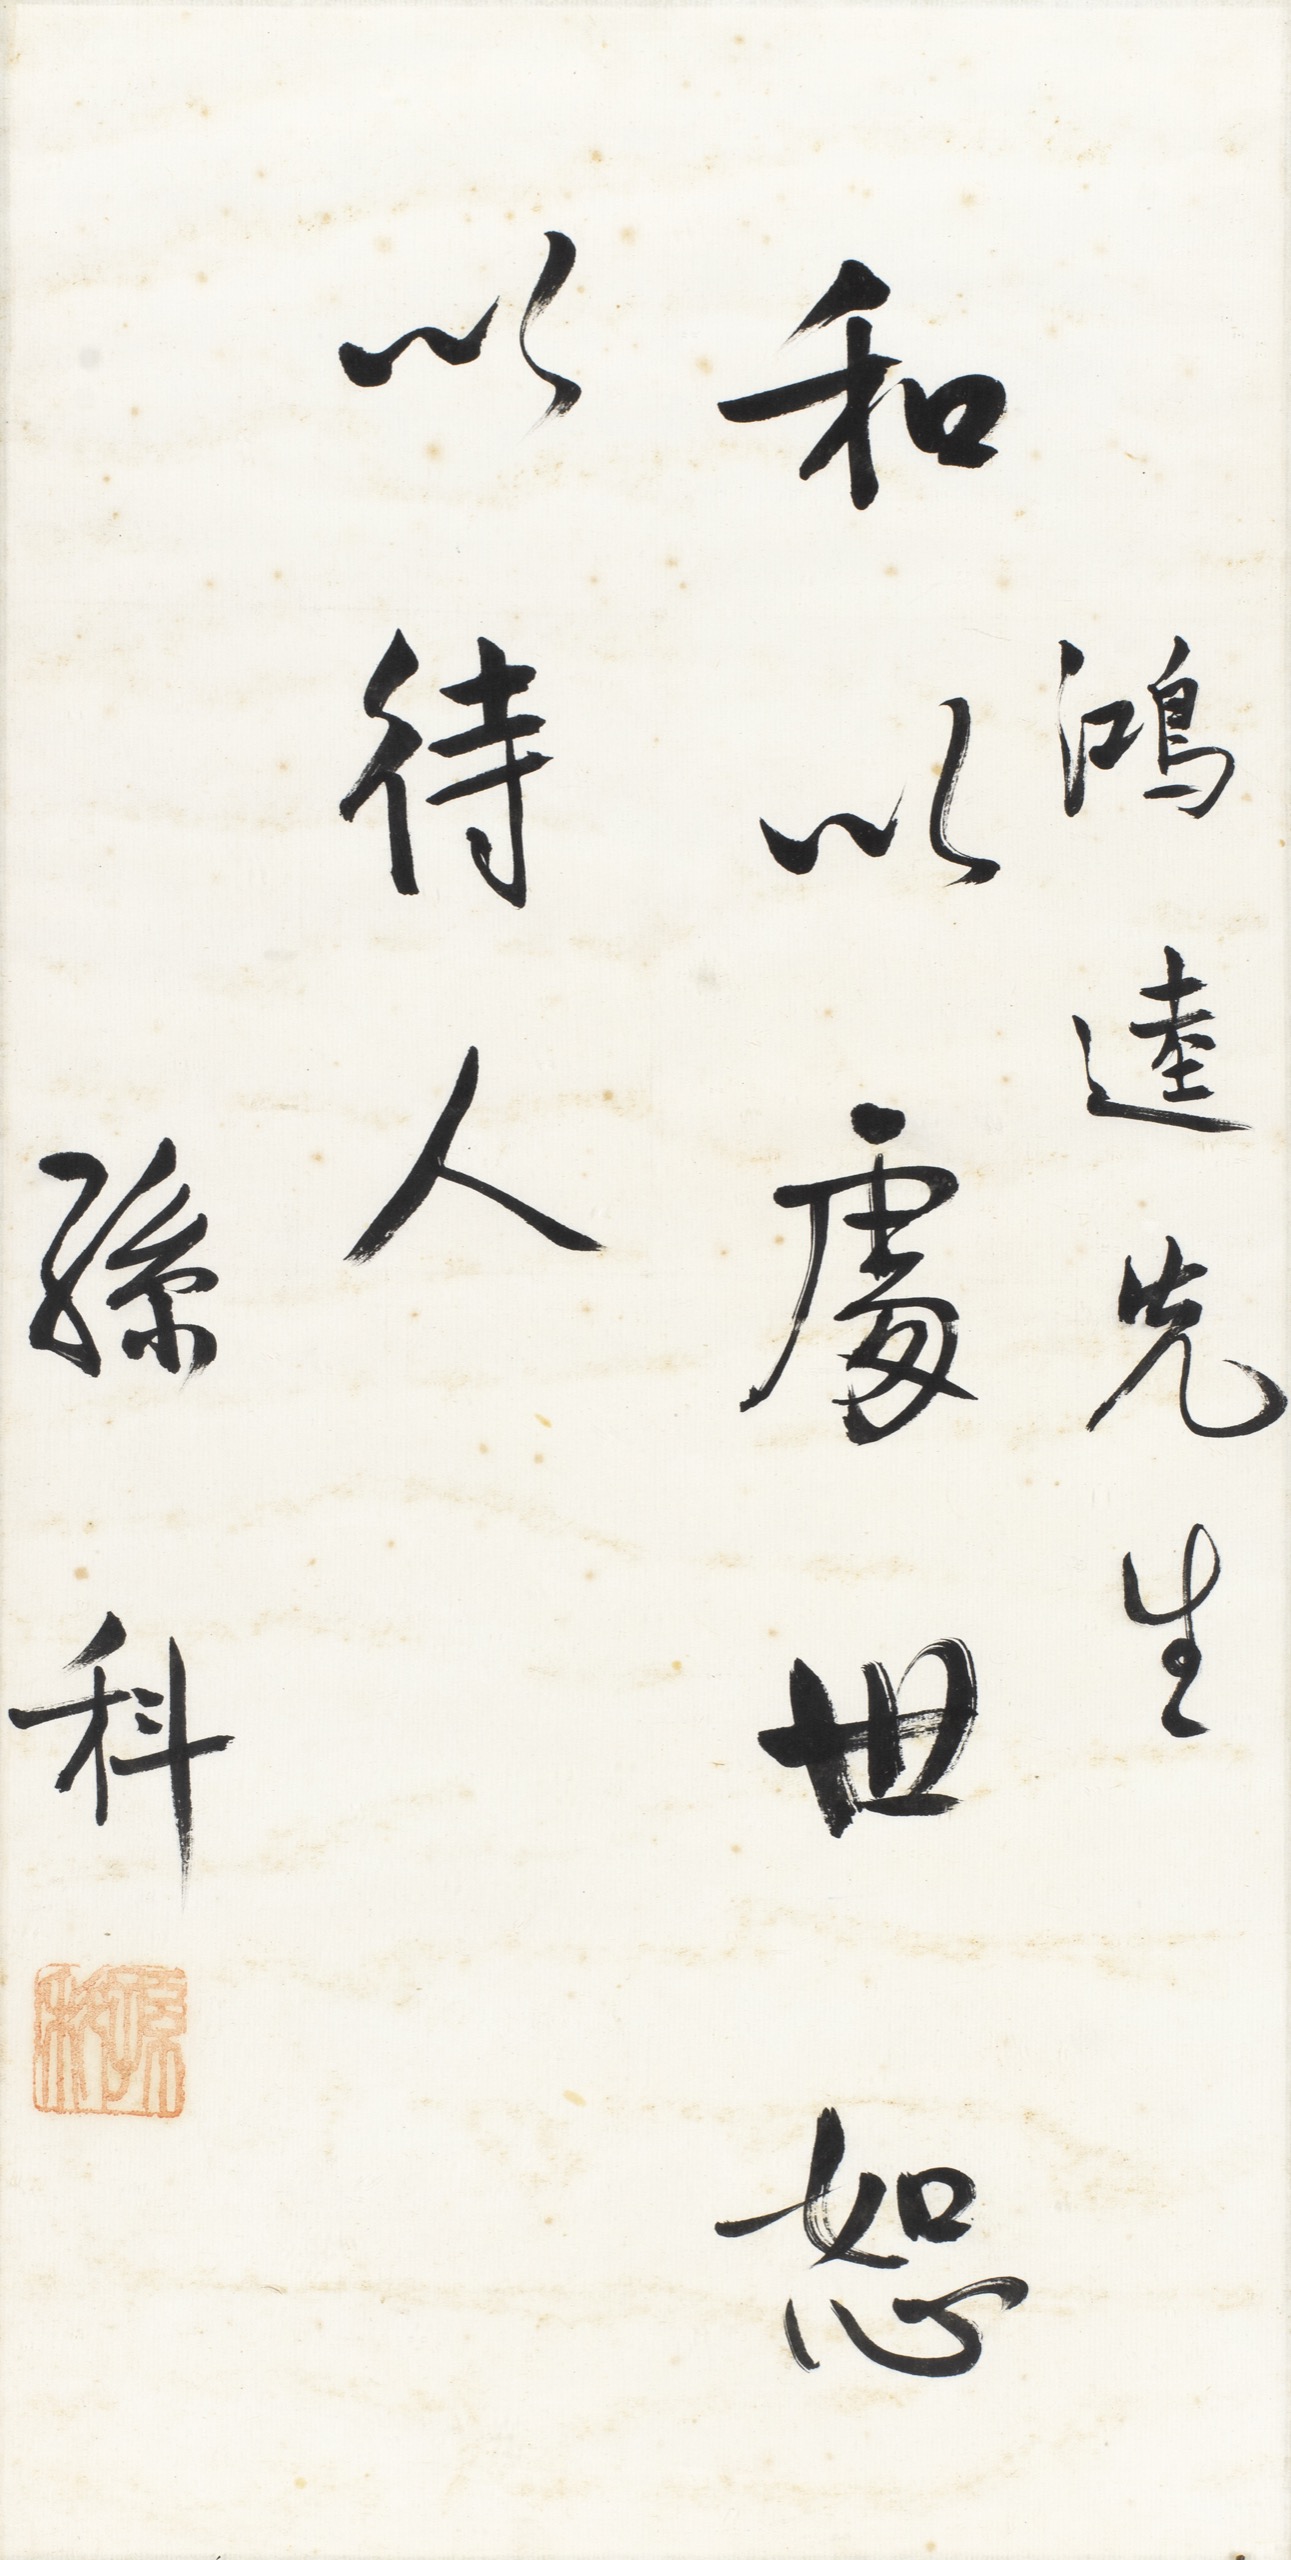 鴻逵先生
和以處世恕
以待人
孫科
孫科